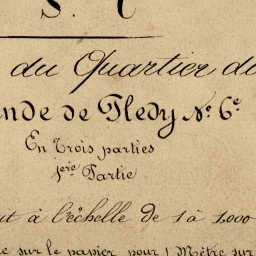 S. C
du Quartier du
nde de Pledy N.º 6e
En Trois parties
1ère Partie
ut à l'échelle de 1 à 1,000
e sur le papier pour 1 Mètre sur